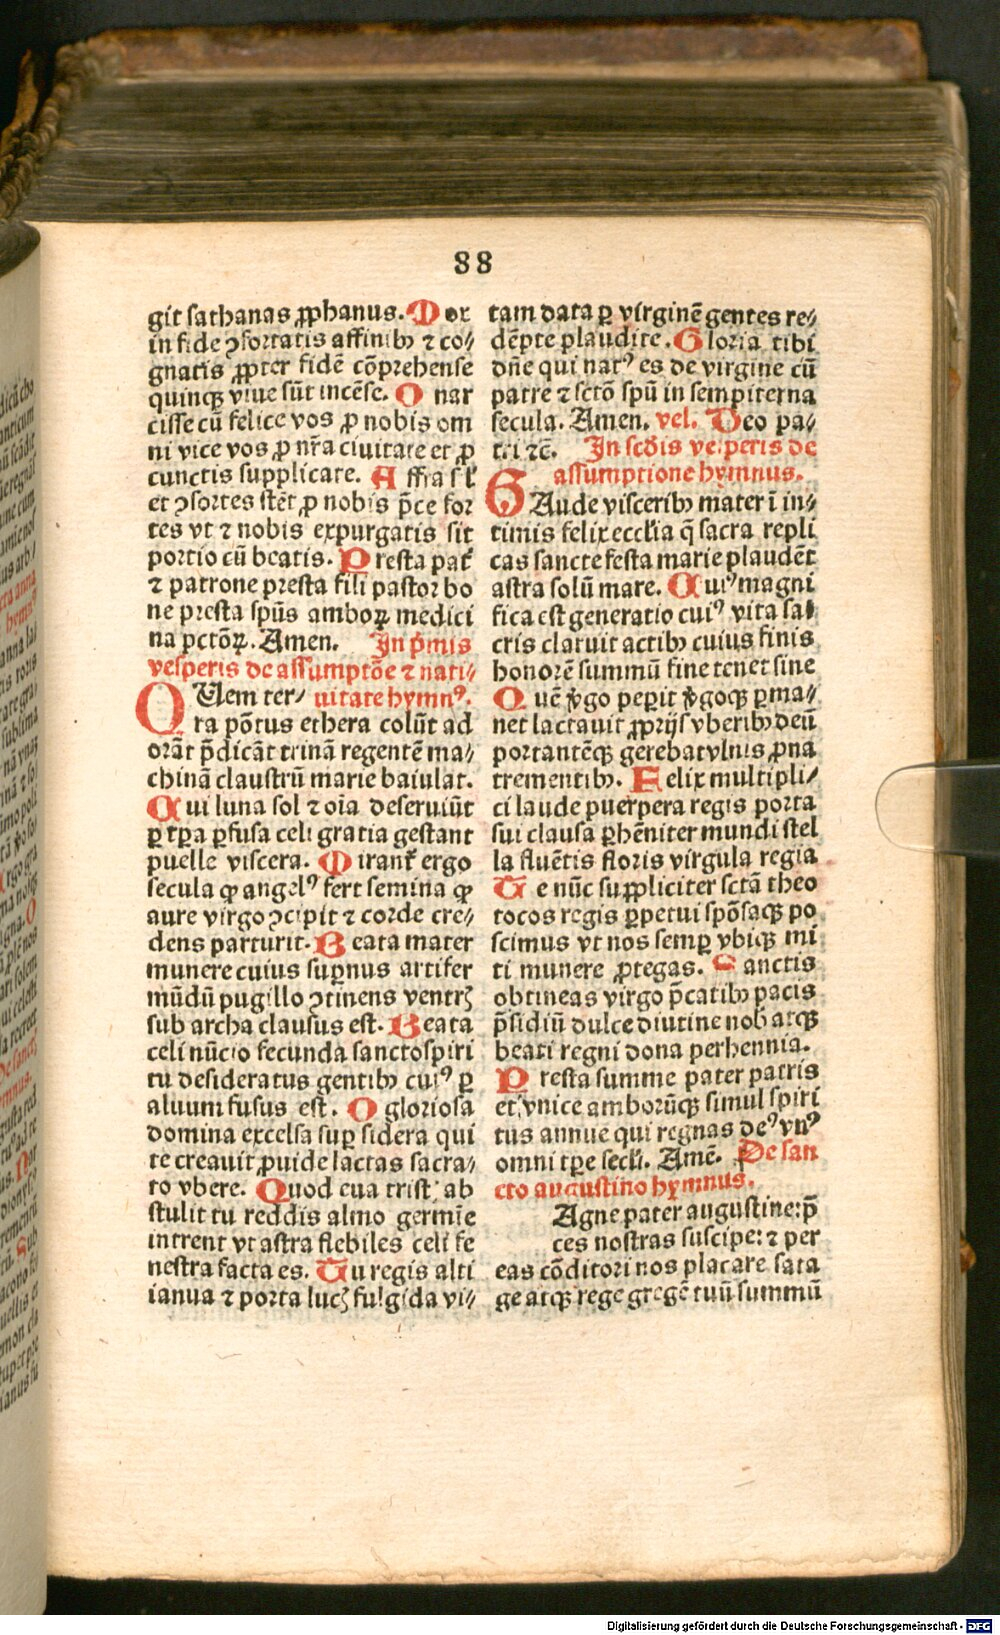 88
git sathanas ꝓphanus. Mox
in fide ꝯfortatis affinibꝫ ⁊ co⸗
gnatis ꝓpter fidē cōprehense
quinqꝫ viue sūt incēse. O nar
cisse cū felice vos ꝓ nobis om
ni vice vos ꝓ nr̄a ciuitate et ꝓ
cunctis supplicate. Affra
et ꝯsortes stēt ꝓ nobis p̄ce for
tes vt ⁊ nobis expurgatis sit
portio cū beatis. Presta pat̄
⁊ patrone presta fili pastor bo
ne presta spūs amboꝝ medici
na pctōꝝ. Amen. In p̄mis
vesperis de assumptōe ⁊ nati⸗
uitate hymnꝰ.
QUem ter⸗
ra pōtus ethera colūt ad
orāt p̄dicāt trinā regentē ma⸗
chinā claustrū marie baiulat.
Cui luna sol ⁊ oīa deseruiūt
ꝑ tꝑa ꝑfusa celi gratia gestant
puelle viscera. Mirant̄ ergo
secula ꝙ angelꝰ fert semina ꝙ
aure virgo ꝯcipit ⁊ corde cre⸗
dens parturit. Beata mater
munere cuius suꝑnus artifer
mūdū pugillo ꝯtinens ventrꝫ
sub archa clausus est. Beata
celi nūcio fecunda sanctospiri
tu desideratus gentibꝫ cuiꝰ ꝑ
aluum fusus est. O gloriosa
domina excelsa suꝑ sidera qui
te creauit ꝓuide lactas sacra⸗
to vbere. Quod eua trist: ab
stulit tu reddis almo germīe
intrent vt astra flebiles celi fe
nestra facta es. Tu regis alti
ianua ⁊ porta lucꝫ fulgida vi⸗
tam data ꝑ virginē gentes re⸗
dēpte plaudite. Gloria tibi
dn̄e qui natꝰ es de virgine cū
patre ⁊ sctō spū in sempiterna
secula. Amen. vel. Deo pa⸗
tri ⁊c̄. In scd̄is vesperis de
assumptione hymnus.
GAude visceribꝫ mater ī in⸗
timis felix ecclīa q̄ sacra repli
cas sancte festa marie plaudēt
astra solū mare. Cuiꝰ magni
fica est generatio cuiꝰ vita sa
cris claruit actibꝫ cuius finis
honorē summū fine tenet sine
Quē v̄go peꝑit v̄goqꝫ ꝑma⸗
net lactauit ꝓprijs vberibꝫ deū
portantēqꝫ gerebat vlnis ꝓna
trementibꝫ. Felix multipli⸗
ci laude puerpera regis porta
sui clausa ꝑhēniter mundi stel
la fluētis floris virgula regia
Te nūc suꝓpliciter sctā theo
tocos regis ꝑpetui spōsaqꝫ po
scimus vt nos semꝑ vbiqꝫ mi
ti munere ꝓtegas. Sanctis
obtineas virgo p̄catibꝫ pacis
p̄sidiū dulce diutine nob̄ atqꝫ
beati regni dona perhennia.
Presta summe pater patris
et vnice amborūqꝫ simul spiri
tus annue qui regnas deꝰ vnꝰ
omni tꝑe secl̄i. Amē. De san
cto augustino hymnus.
Agne pater augustine: p̄
ces nostras suscipe: ⁊ per
eas cōditori nos placare sata
ge atqꝫ rege gregē tuū summū
Digitalisierung gefördert durch die Deutsche Forschungsgemeinschaft - DFG